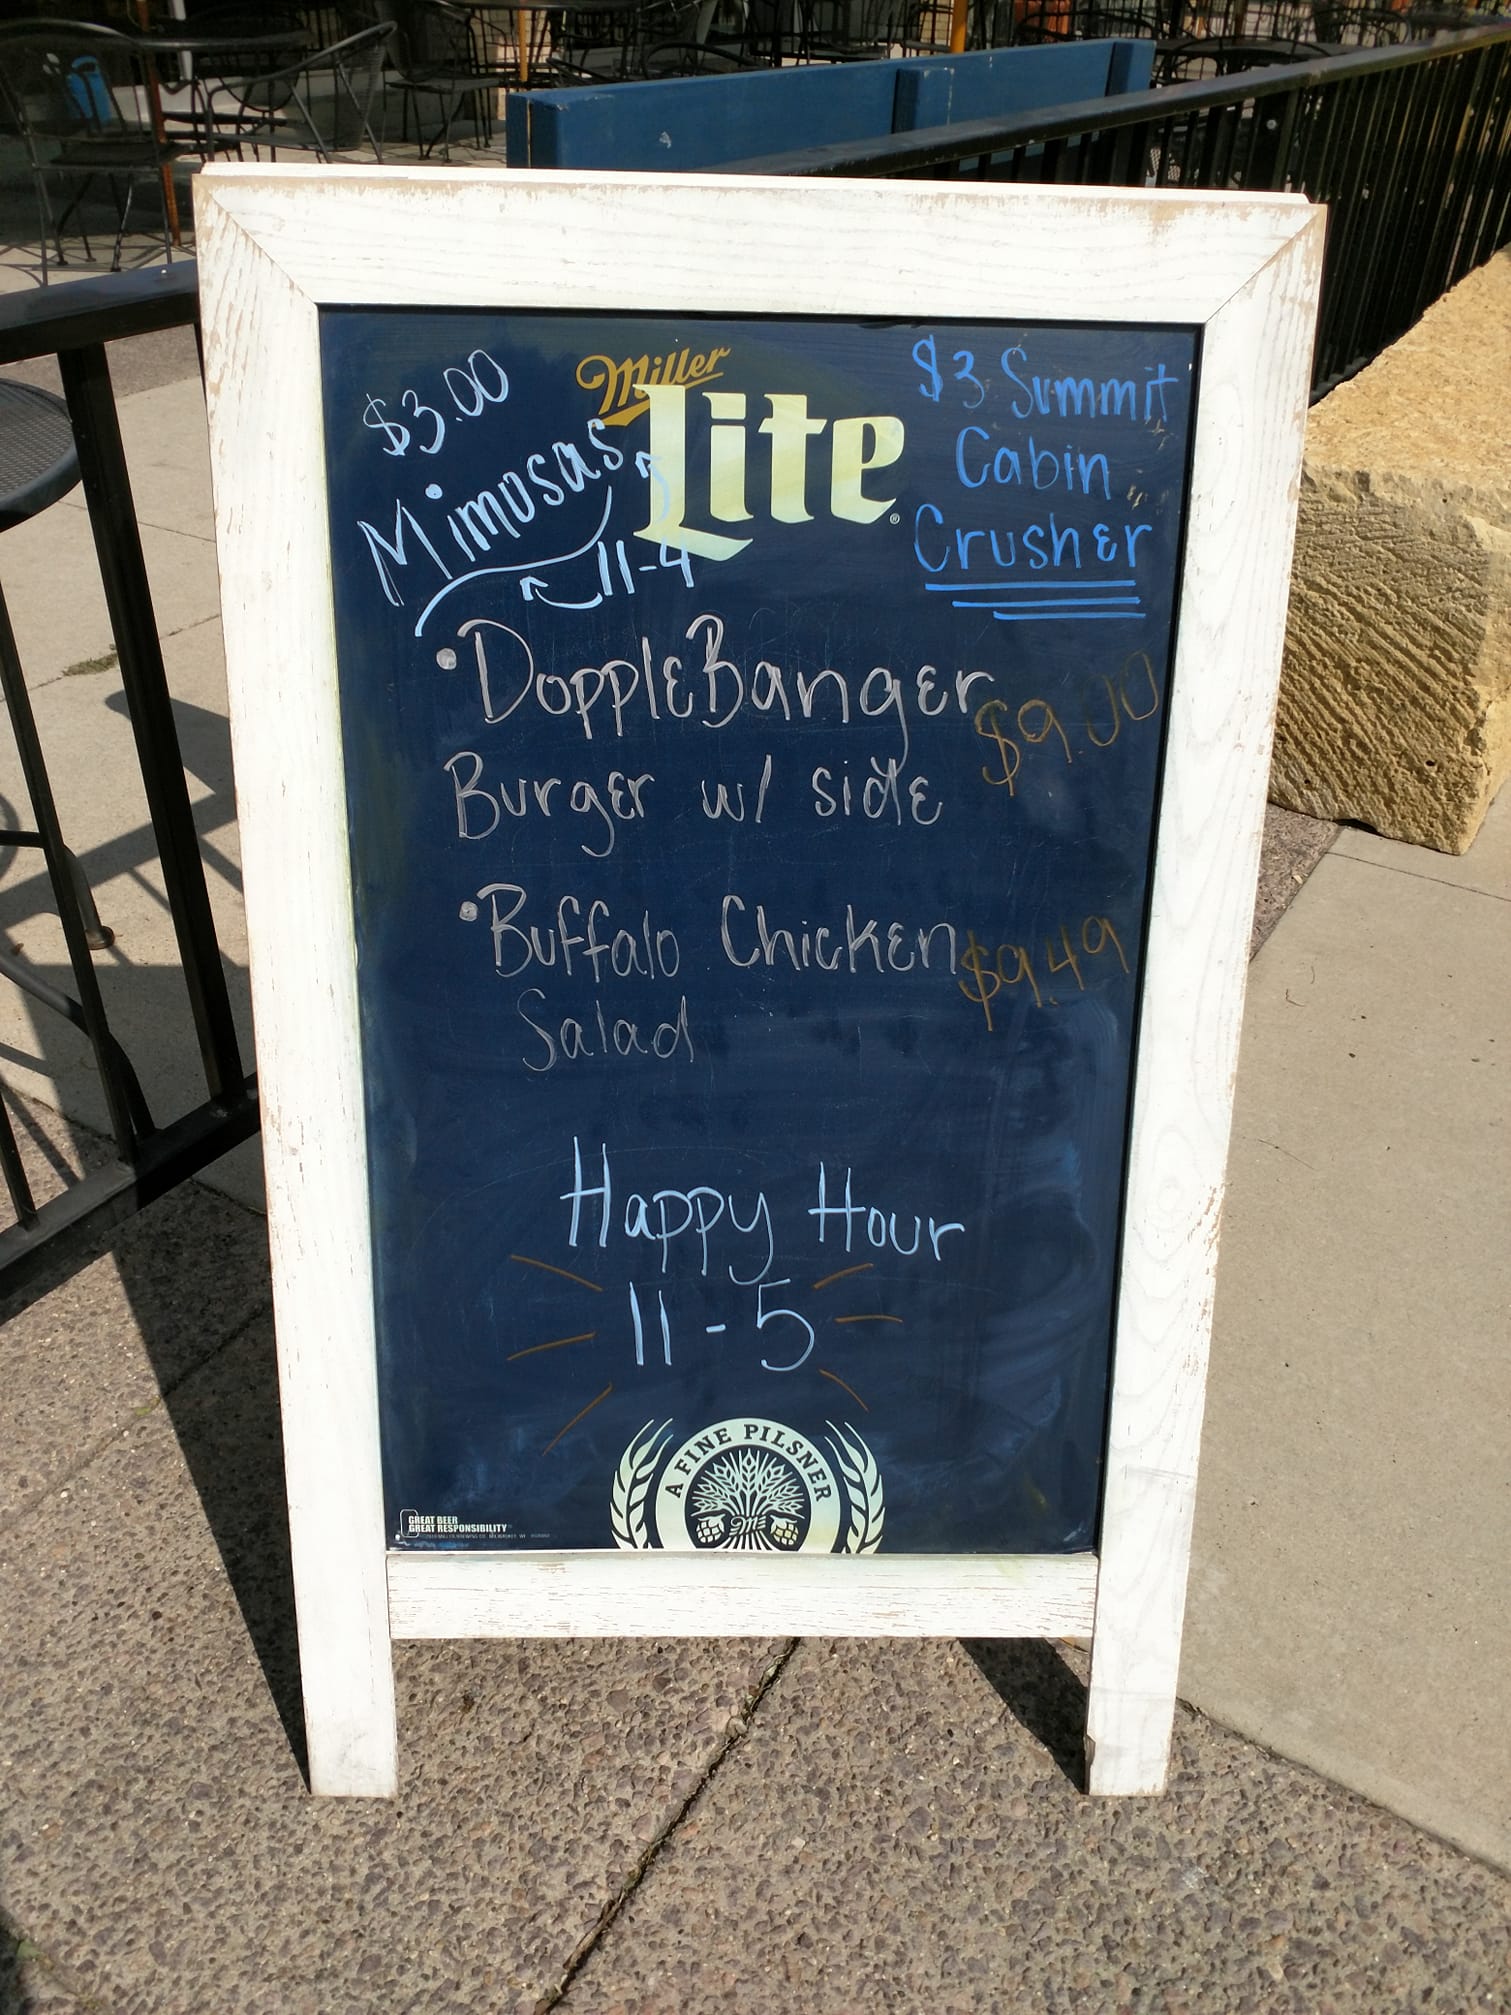 $3.00
Mimosas
11-4
Miller
Lite
$3 Summit
Cabin
Crusher
• DoppleBanger $9.00
Burger w/ side
• Buffalo Chicken $9.49
Salad
Happy Hour
11-5
A FINE PILSNER
GREAT BEER
GREAT RESPONSIBILITY